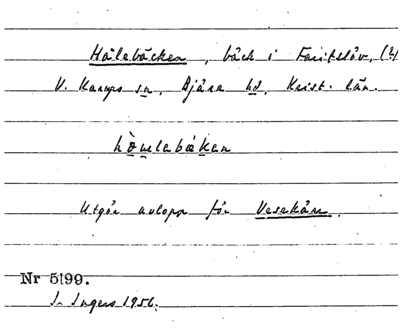 Hålebäcken, bäck i Farstslöv, (4
V. Karups sn, Bjäre hd, Krist. län.
hò̤u̯lebäkan
Utgör avlopp för Vesekärr.
Nr 5199.
I. Ingers 1956.